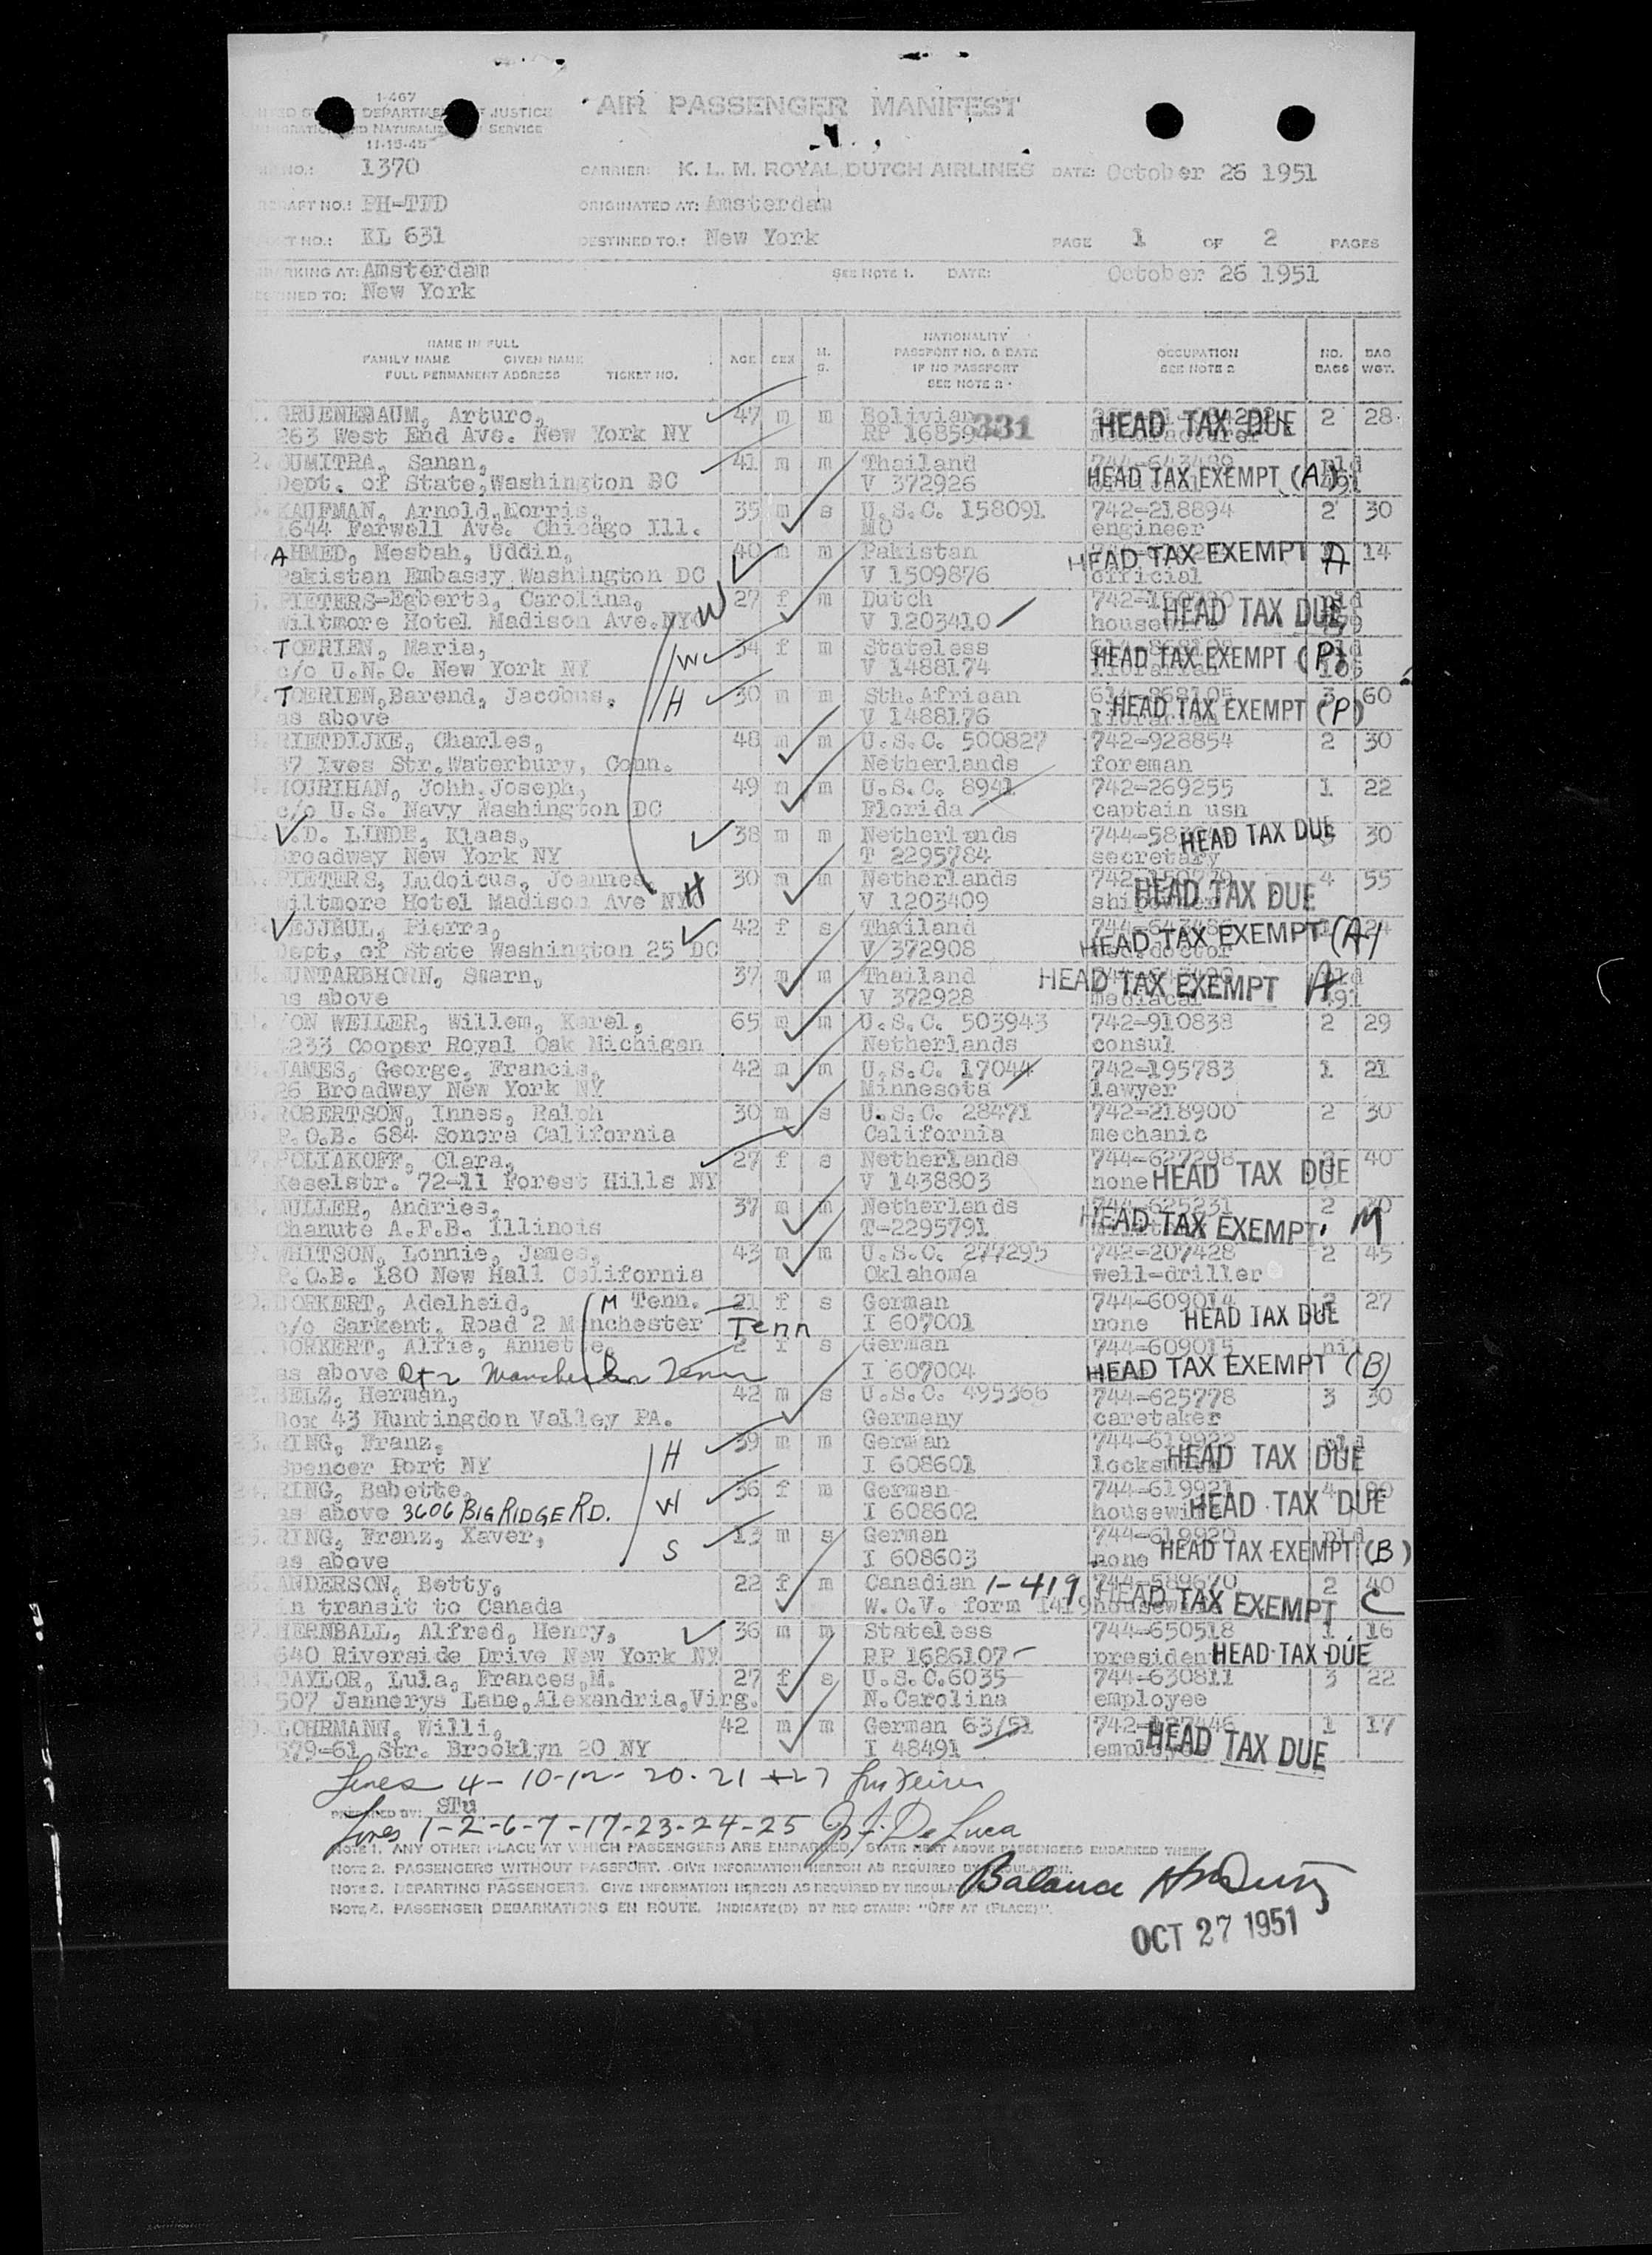 1-467
DEPARTMENT JUSTICE
NATURALIZATION SERVICE
11-15-45
AIR PASSENGER MANIFEST
NO.: 1370 CARRIER: K. L. M. ROYAL DUTCH AIRLINES DATE: October 26 1951
AFT NO.: PH-TDD ORIGINATED AT: Amsterdam
NO.: KL 631 DESTINED TO.: New York PAGE 1 OF 2 PAGES
RKING AT: Amsterdam SEE NOTE 1. DATE: October 26 1951
INED TO: New York
NAME IN FULL
FAMILY NAME GIVEN NAME
FULL PERMANENT ADDRESS TICKET NO. AGE SEX M. S. NATIONALITY PASSPORT NO. & DATE IF NO PASSPORT SEE NOTE 2 OCCUPATION SEE NOTE 2 NO. BAGS BAG WGT.
GRUENEBAUM, Arturo, 47 m m Bolivian 331 HEAD TAX DUE 2 28
263 West End Ave. New York NY RP 16859
2. SUMITRA, Sanan, 41 m m Thailand 744-643489 pld
Dept. of State, Washington DC V 372926 HEAD TAX EXEMPT (A) 491
KAUFMAN, Arnold, Morris, 35 m s U.S.C. 158091 742-218894 2 30
1644 Farwell Ave. Chicago Ill. MO engineer
AHMED, Mesbah, Uddin, 40 m m Pakistan HEAD TAX EXEMPT A 14
Pakistan Embassy Washington DC V 1509876 official
5. PIETERS-Egberts, Carolina, W 27 f m Dutch 742- HEAD TAX DUE pld
Wiltmore Hotel Madison Ave. NYC V 1203410 housewife
TOERIEN, Maria, W 34 f m Stateless HEAD TAX EXEMPT (P) pld
c/o U.N.O. New York NY V 1488174 librarian
TOERIEN, Barend, Jacobus, H 30 m m Sth. African 614-868105 3 60
as above V 1488176 HEAD TAX EXEMPT (P)
RIETDIJKE, Charles, 48 m m U.S.C. 500827 742-928854 2 30
37 Ives Str. Waterbury, Conn. Netherlands foreman
HOURIHAN, Johh. Joseph, 49 m m U.S.C. 8941 742-269255 1 22
c/o U.S. Navy Washington DC Florida captain usn
V.D. LINDE, Klaas, 38 m m Netherlands 744-58 HEAD TAX DUE 30
Broadway New York NY T 2295784 secretary
PIETERS, Ludoicus, Joannes, H 30 m m Netherlands 742- 4 55
Wiltmore Hotel Madison Ave NYC V 1203409 HEAD TAX DUE
VEJJBUL, Pierra, 42 f s Thailand HEAD TAX EXEMPT (A) 24
Dept. of State Washington 25 DC V 372908 doctor
SUNTARBHORN, Smarn, 37 m m Thailand HEAD TAX EXEMPT A pld
as above V 372928 491
VON WEILER, Willem, Karel, 65 m m U.S.C. 503943 742-910838 2 29
4233 Cooper Royal Oak Michigan Netherlands consul
JAMES, George, Francis, 42 m m U.S.C. 17044 742-195783 1 21
26 Broadway New York NY Minnesota lawyer
ROBERTSON, Innes, Ralph 30 m s U.S.C. 28471 742-218900 2 30
P.O.B. 684 Sonora California California mechanic
POLIAKOFF, Clara, 27 f s Netherlands 744-627298 40
Keselstr. 72-11 Forest Hills NY V 1438803 none HEAD TAX DUE
MULLER, Andries, 37 m m Netherlands 744-625231 2 30
Chanute A.F.B. Illinois T-2295791 HEAD TAX EXEMPT. M
WHITSON, Lonnie, James, 43 m m U.S.C. 277295 742-207428 2 45
P.O.B. 180 New Hall California Oklahoma well-driller
20. BORKERT, Adelheid, M Tenn. 21 f s German 744-609014 2 27
c/o Sarkent, Road 2 Manchester Tenn I 607001 none HEAD TAX DUE
BORKERT, Alfie, Annette, 2 f s German 744-609015 nil
as above Rt 2 Manchester Tenn I 607004 HEAD TAX EXEMPT (B)
BELZ, Herman, 42 m s U.S.C. 495366 744-625778 3 30
Box 43 Huntingdon Valley PA. Germany caretaker
23. RING, Franz, H 39 m m German 744-619922 pld
Spencer Port NY I 608601 locksmith HEAD TAX DUE
24. RING, Babette, W 36 f m German 744-619921 4 90
as above 3606 BIG RIDGE RD. I 608602 housewife HEAD TAX DUE
25. RING, Franz, Xaver, S 13 m s German 744-619920 pld
as above I 608603 none HEAD TAX EXEMPT (B)
ANDERSON, Betty, 22 f m Canadian 1-419 744-589670 2 40
in transit to Canada W.O.V. form 1419 housewife HEAD TAX EXEMPT C
27. HERNBALL, Alfred, Henry, 36 m m Stateless 744-650518 1 16
640 Riverside Drive New York NY RP 1686107 president HEAD TAX DUE
TAYLOR, Lula, Frances, M. 27 f s U.S.C. 6035 744-630811 3 22
507 Jannerys Lane, Alexandria, Virg. N.Carolina employee
LOHRMANN, Willi, 42 m m German 63/51 742-127446 1 17
579-61 Str. Brooklyn 20 NY I 48491 employee HEAD TAX DUE
Lines 4-10-12-20-21+27
PREPARED BY: STu
Lines 1-2-6-7-17-23-24-25 J. De Luca
NOTE 1. ANY OTHER PLACE AT WHICH PASSENGERS ARE EMBARKED, STATE NEXT ABOVE PASSENGERS EMBARKED THERE.
NOTE 2. PASSENGERS WITHOUT PASSPORT. GIVE INFORMATION HEREON AS REQUIRED BY REGULATION.
NOTE 3. DEPARTING PASSENGERS. GIVE INFORMATION HEREON AS REQUIRED BY REGULATION.
Balance
NOTE 4. PASSENGER DEBARKATIONS EN ROUTE. INDICATE(D) BY RED STAMP: "OFF AT (PLACE)".
OCT 27 1951